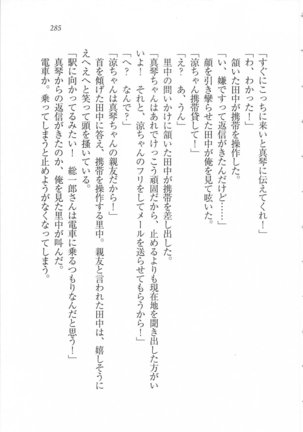 285
「すぐにこっちに来いと真琴に伝えてくれ！」
「わ、わかった！」
頷いた田中が携帯を操作した。
「い、嫌ですって返信がきたんだけど……」
顔を引き攣らせた田中が俺を見て呟いた。
「涼ちゃん携帯貸して！」
「え？　あ、うん」
里中の問いかけに頷いた田中が携帯を差し出した。
「真琴ちゃんはあれでけっこう頑固だから、止めるよりも現在地を聞き出した方がい
いよ！　それに、涼ちゃんのフリをしてメールを送らせてもらうから！」
「へ？　なんで？」
「涼ちゃんは真琴ちゃんの親友だから！」
首を傾げた田中に答え、携帯を操作する里中。親友と言われた田中は、嬉しそうに
えへえへと笑って頭を掻いている。
「駅に向かってるみたい！　総一郎さんは電車に乗るつもりなんだと思う！」
真琴からの返信がきたのか、俺を見た里中が叫んだ。
電車か。乗ってしまうと止めようがなくなってしまう。